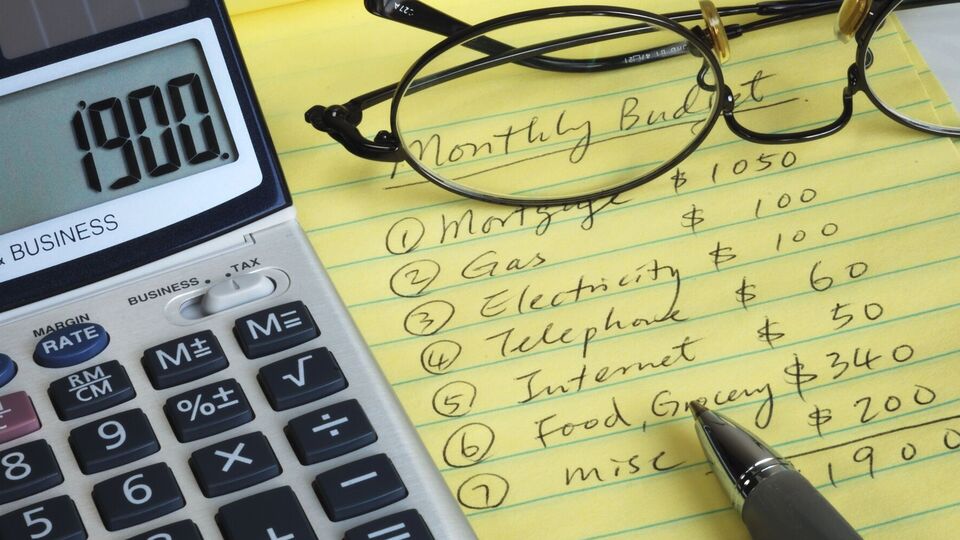 1900.
& BUSINESS
BUSINESS
TAX
MARGIN
RATE
M±
M=
RM
CM
%±
√
9
÷
8
×
6
−
5
+
=
Monthly Budget
① Mortgage $ 1050
② Gas $ 100
③ Electricity $ 100
④ Telephone $ 60
⑤ Internet $ 50
⑥ Food, Grocery $340
⑦ misc $ 200
1900